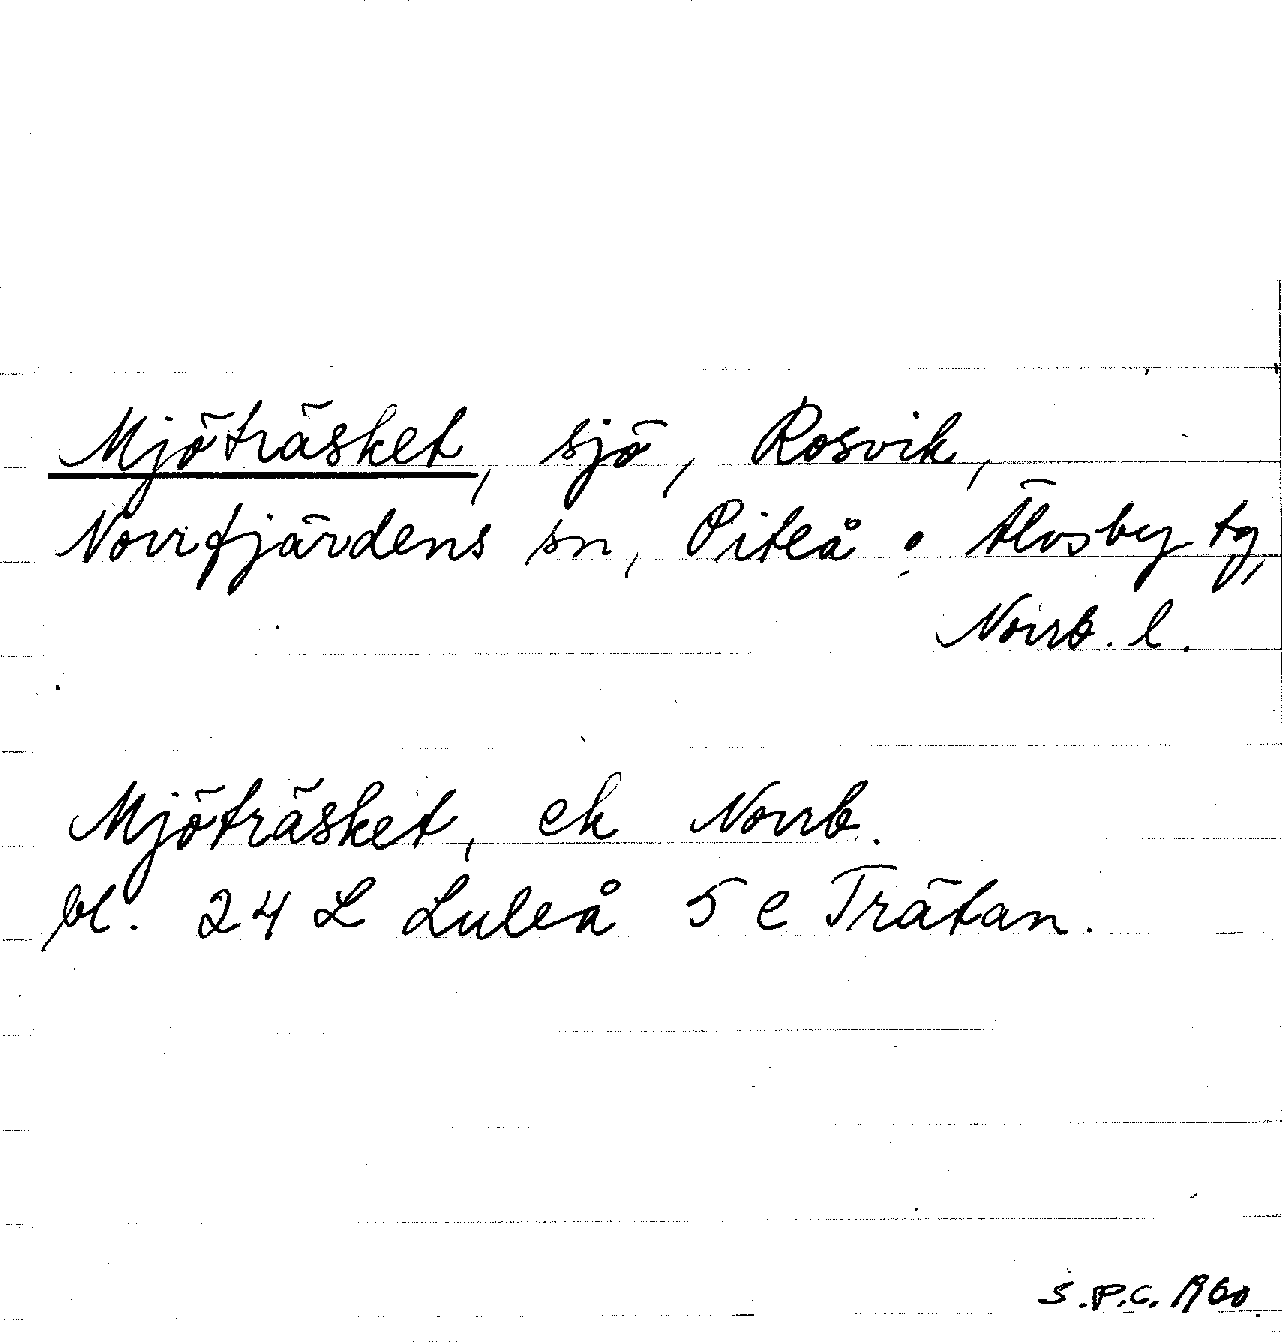 Mjöträsket, sjö, Rosvik,
Norrfjärdens sn, Piteå o Älvsby tg,
Norrb. l.
Mjöträsket, ek Norrb.
bl. 24 L Luleå 5 e Trätan.
S.P.C. 1960.